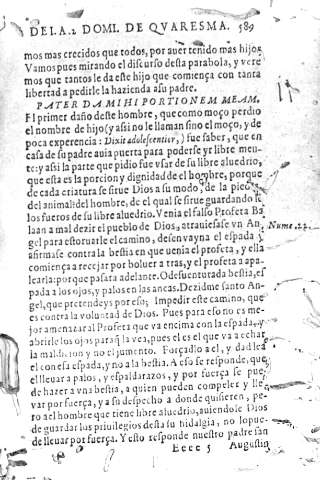 DE LA .2. DOMI. DE QVARESMA. 589
mos mas crecidos que todos, por auer tenido mas hijos
Vamos pues mirando el discurso desta parabola, y vere
mos que tantos le da este hijo que comiença con tanta
libertad a pedirle la hazienda a su padre.
PATER DA MIHI PORTIONEM MEAM.
El primer daño deste hombre, que como moço perdio
el nombre de hijo (y assi no le llaman sino el moço, y de
poca experencia: Dixit adolescentior,) fue saber, que en
casa de su padre auia puerta para poderse yr libre men-
te: y assi la parte que pidio fue vsar de su libre aluedrio,
que esta es la porcion y dignidad de el hombre, porque
de cada criatura se sirue Dios a su modo, de la piedra
del animal: del hombre, de el qual se sirue guardando se
los fueros de su libre aluedrio. Venia el falso Propheta Ba
laan a mal dezir el pueblo de Dios, atrauiesase vn An-
gel para estoruarle el camino, desenvayna el espada y
afirmase contra la bestia en que uenia el propheta, y ella
comiença a recejar por boluer a tras, y el propheta a apa-
learla: por que pasara adelante. O desuenturada bestia, es
pada a los ojos, y palos en las ancas. Dezidme santo An-
gel, que pretendeys por eso? Impedir este camino, que
es contra la voluntad de Dios. Pues para eso no es me-
jor amenazar al Propheta que va encima con la espada, y
abrirle los ojos para q̃ la vea, pues el es el que va a echar
la maldicion y no el jumento. Forçadlo a el, y dad le a
el con esa espada, y no a la bestia. A eso se responde, que
el lleuar a palos, y espaldarazos, y por fuerça se pue-
de hazer a vna bestia, a quien pueden compeler y lle
var por fuerça, y a su despecho a donde quisieren, pe-
ro a el hombre que tiene libre aluedrio, auiendole Dios
de guardar los priuilegios desta su hidalgia, no lo pue-
de lleuar por fuerça. Y esto responde nuestro padre san
Eeee 5 Augustin
Nume. 22.